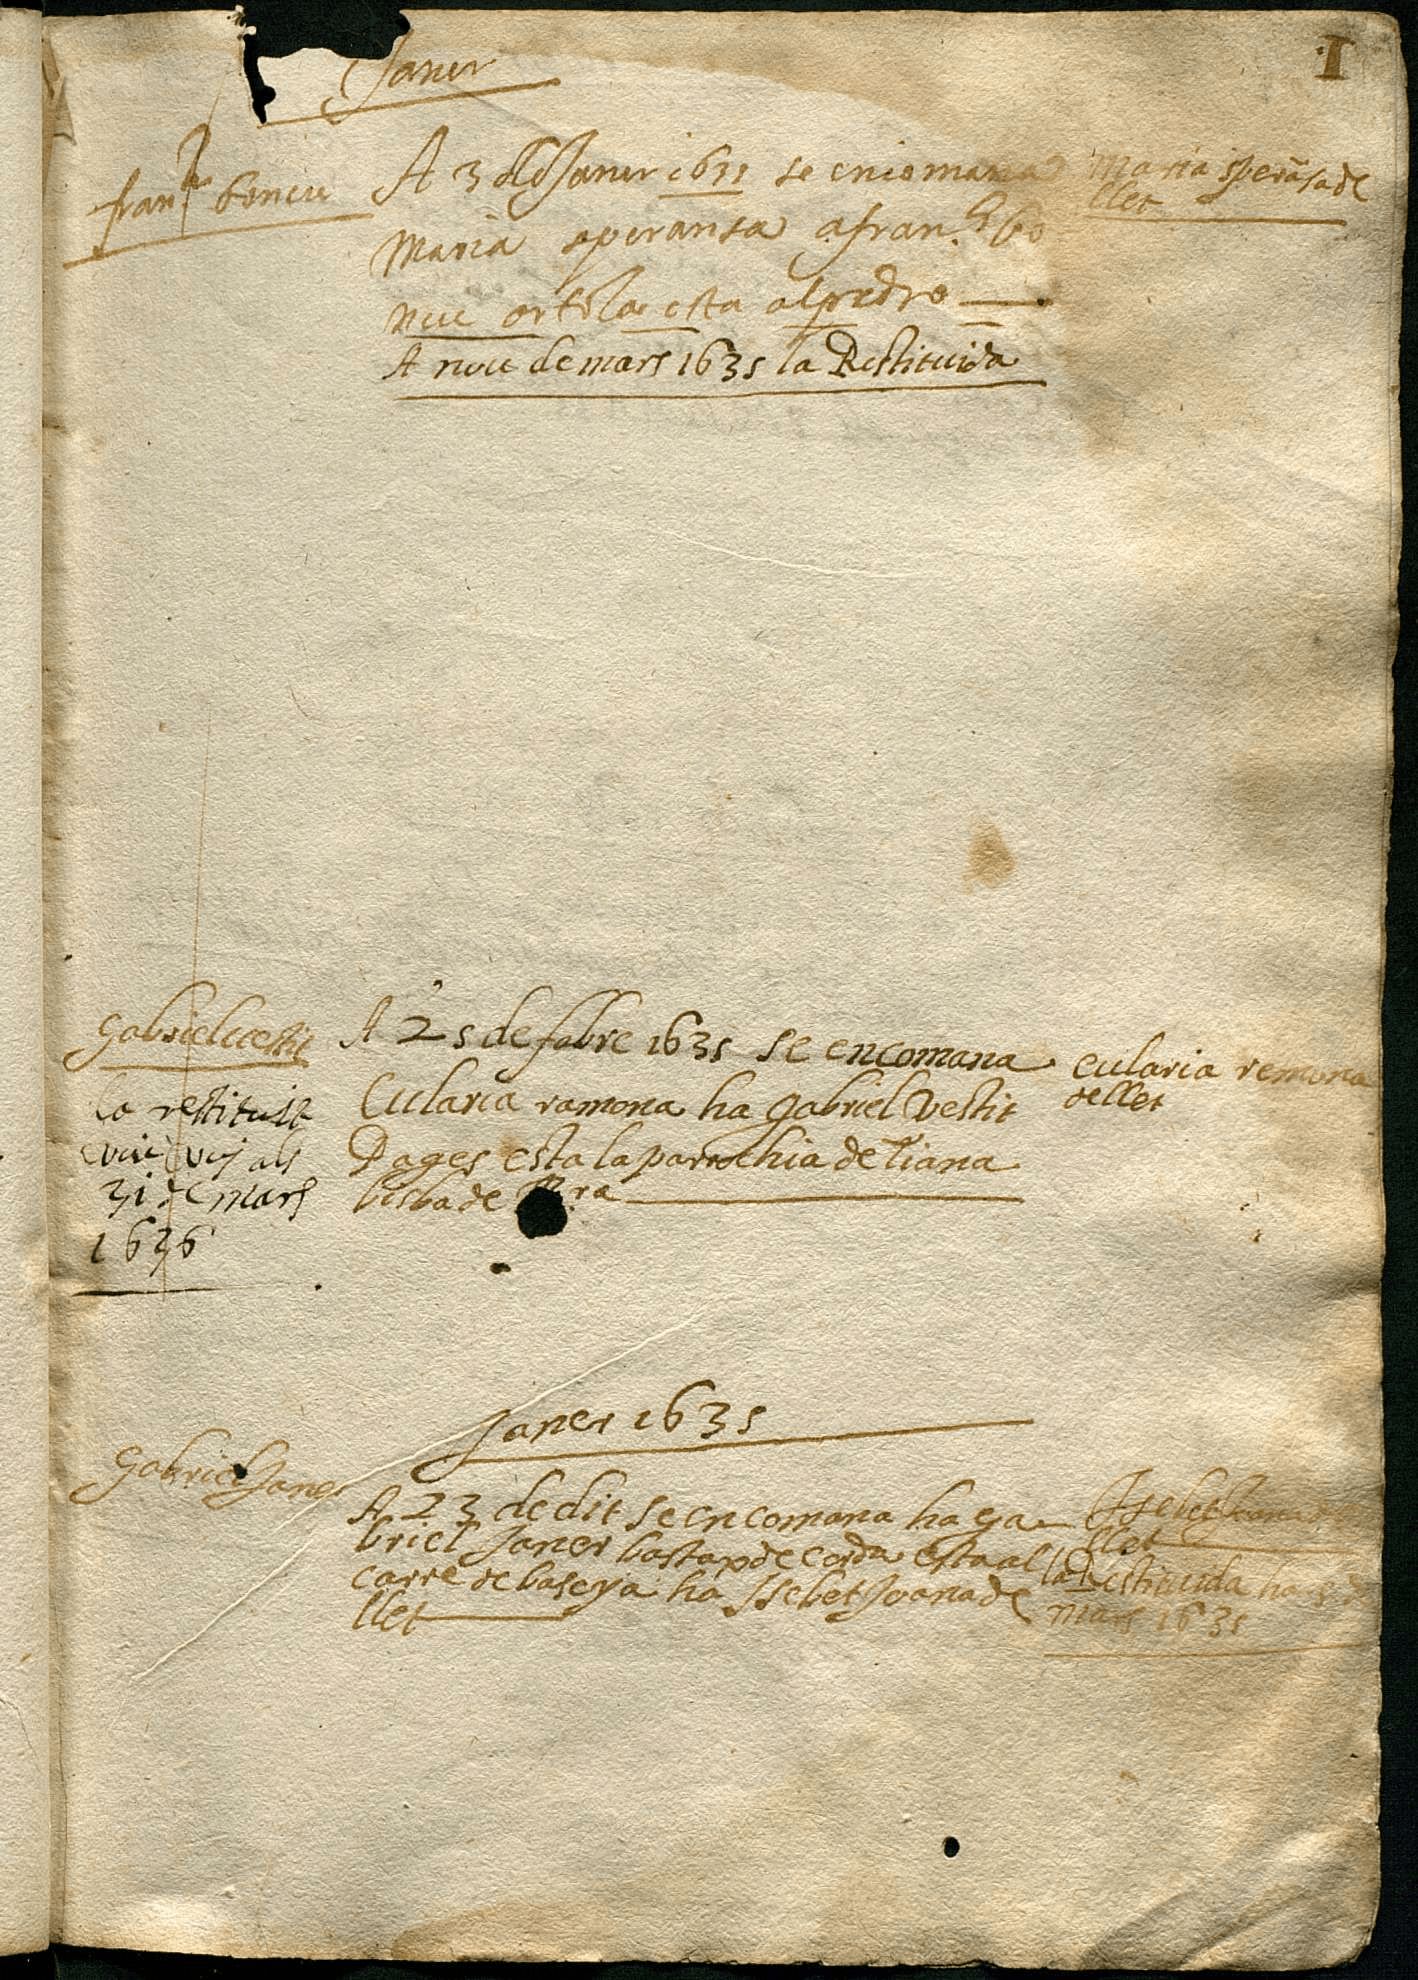 1
Janer
fran.ch boneu
A 3 de Janer 1635 se encomana
Maria speransa a fran.ch bo
neu ortola esta al pedro
Maria sperãsa de
llet
A nou de mars 1635 la Restituida
Gabriel vestit
la restituit
viu als
31 de mars
1636
A 25 de fabre 1635 se encomana
Eularia ramona ha gabriel vestit
Pages esta la parrochia de Tiana
bisbade
eularia remona
de llet
Janer 1635
Gabriel Janer
A 23 de dit se encomana ha ga
briel Janer bastax de corda esta al
carre de baseya ha Isebet Joana de
llet
Isebet Joana de
llet
la Restituida ha 5 de
mars 1635